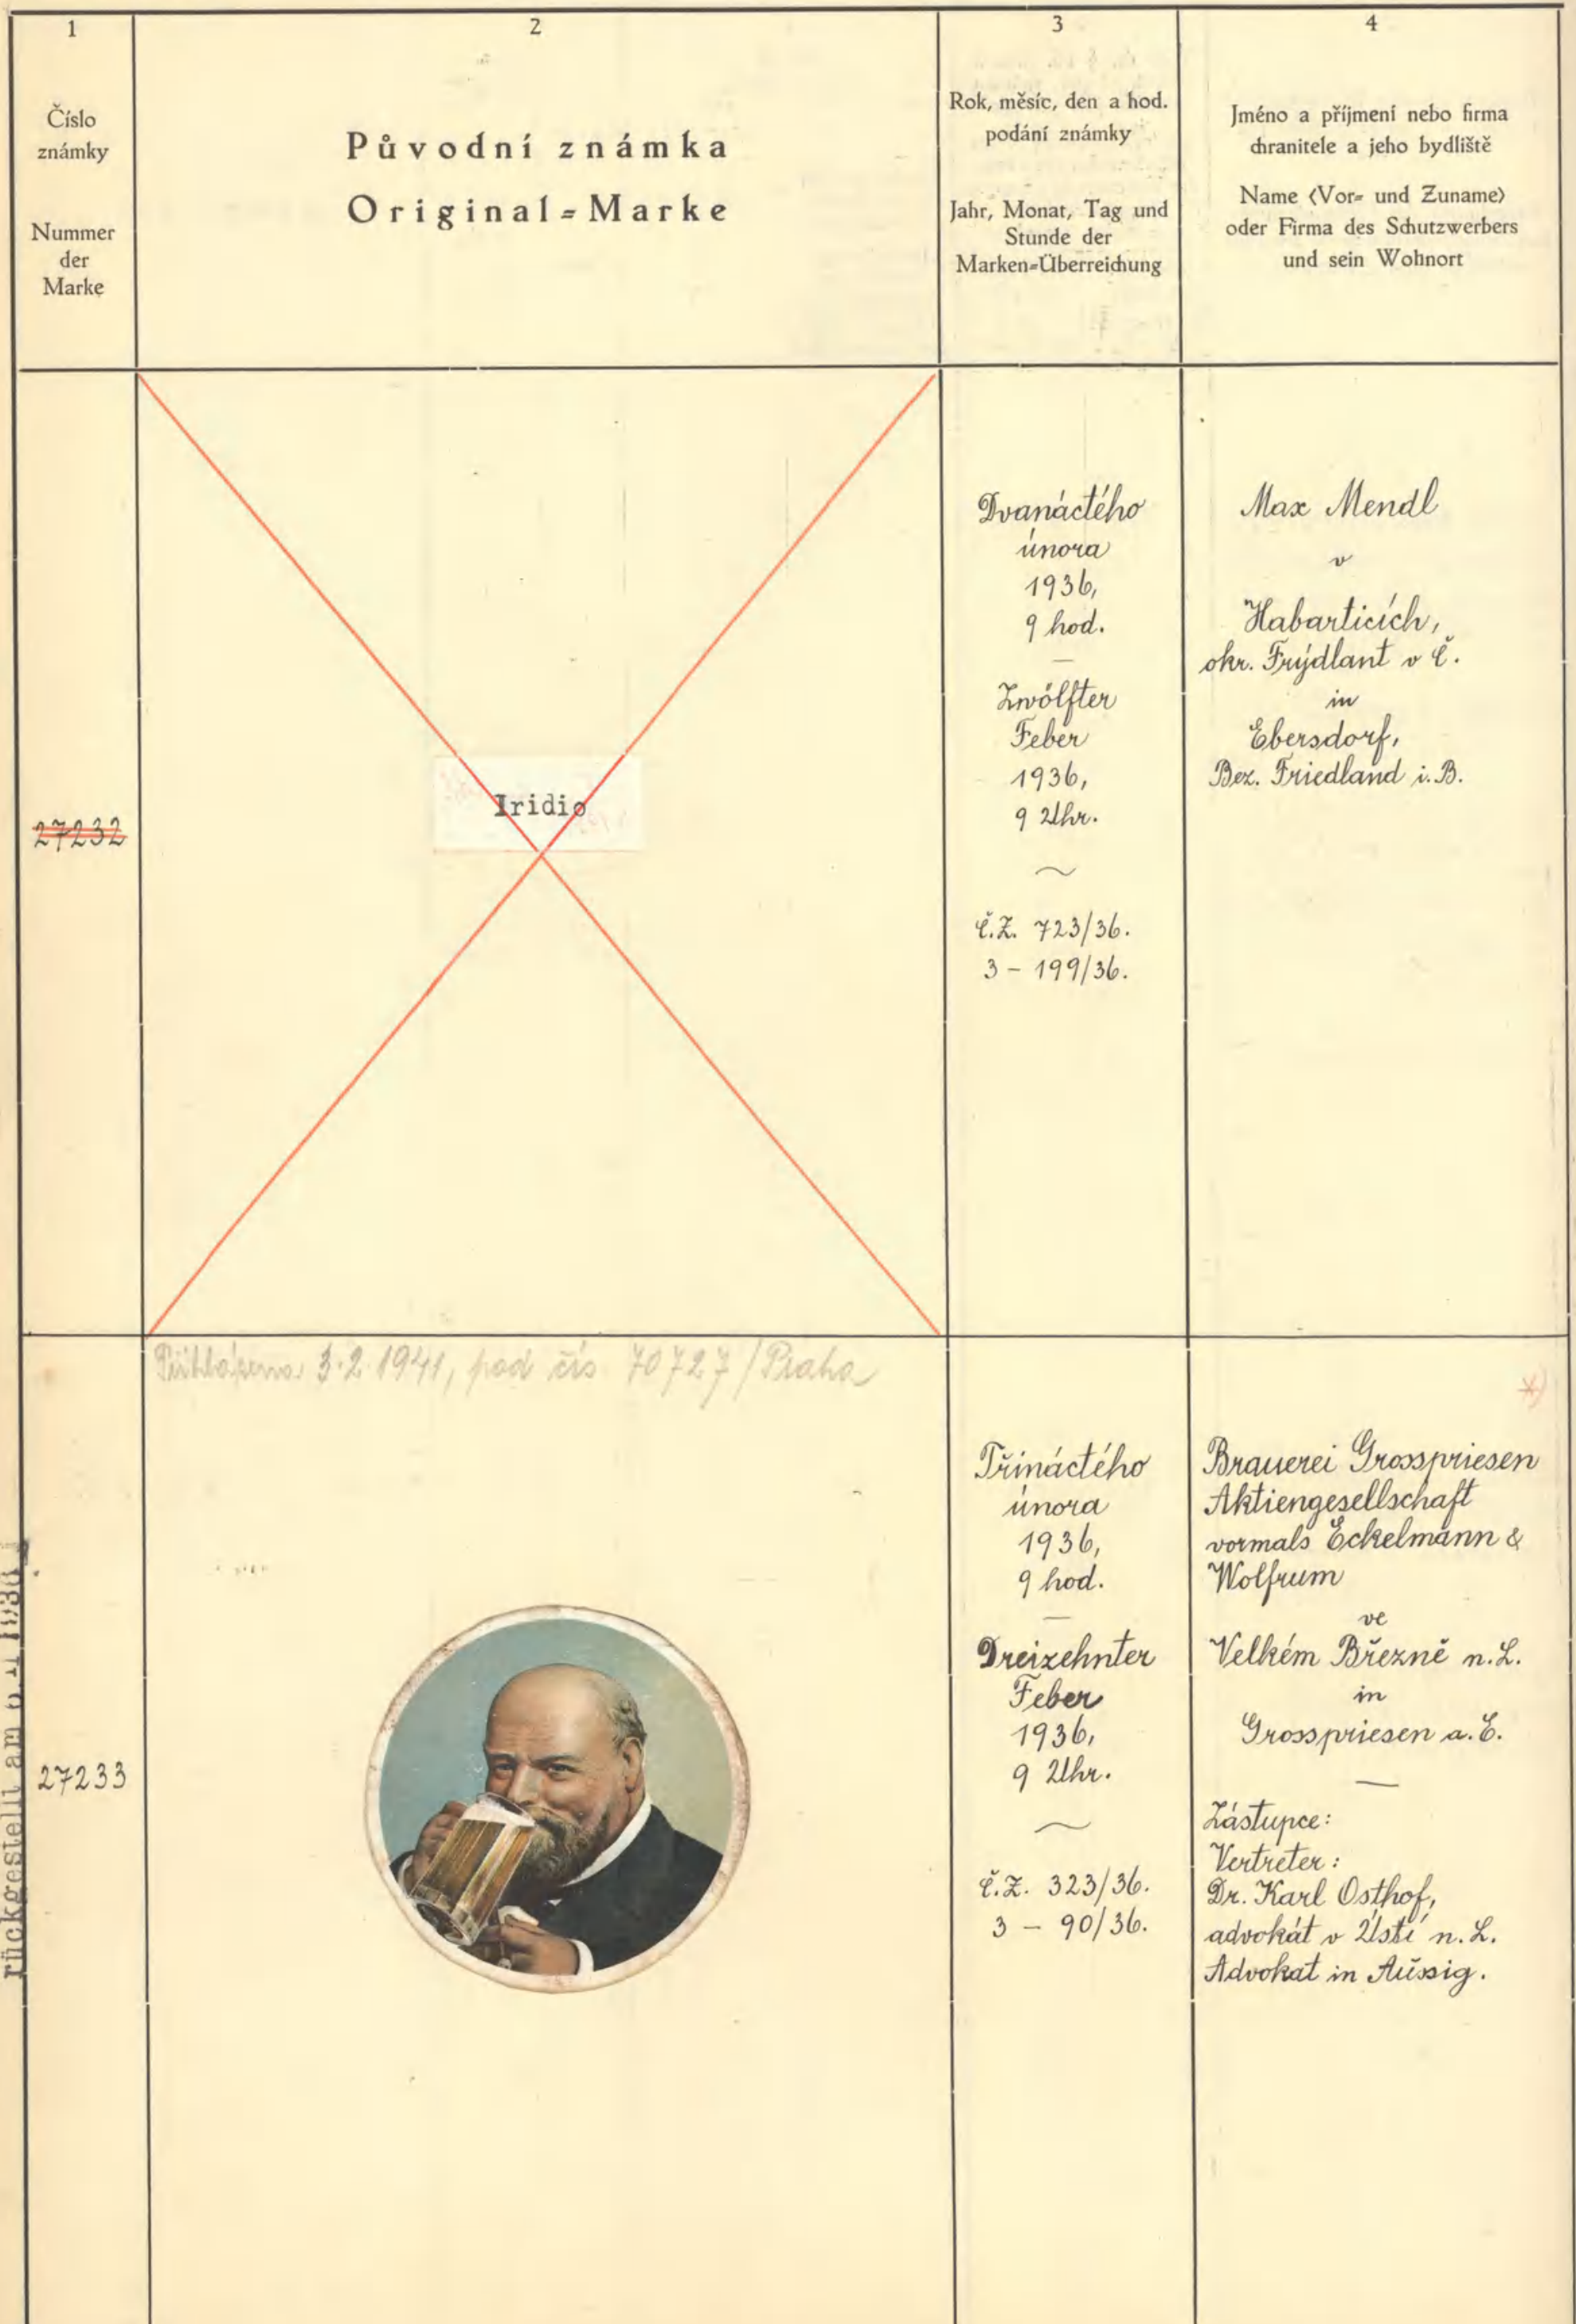 1
Číslo
známky
Nummer
der
Marke
2
Původní známka
Original=Marke
3
Rok, měsíc, den a hod.
podání známky
Jahr, Monat, Tag und
Stunde der
Marken=Überreichung
4
Jméno a příjmení nebo firma
chranitele a jeho bydliště
Name (Vor= und Zuname)
oder Firma des Schutzwerbers
und sein Wohnort
27232
Iridio
Dvanáctého
února
1936,
9 hod.
—
Zwölfter
Feber
1936,
9 Uhr.
Č.Z. 723/36.
3 - 199/36.
Max Mendl
v
Habarticích,
okr. Frýdlant v Č.
in
Ebersdorf,
Bez. Friedland i. B.
3.2.1941, pod čís. 70727/Praha
27233
Třináctého
února
1936,
9 hod.
—
Dreizehnter
Feber
1936,
9 Uhr.
Č.Z. 323/36.
3 - 90/36.
*)
Brauerei Grosspriesen
Aktiengesellschaft
vormals Eckelmann &
Wolfrum
ve
Velkém Březně n. L.
in
Grosspriesen a. E.
—
Zástupce:
Vertreter:
Dr. Karl Osthof,
advokát v Ústí n. L.
Advokat in Aussig.
rückgestellt am